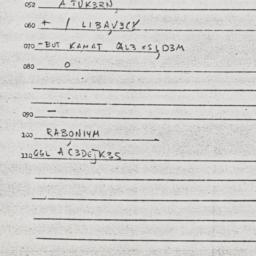 052 ATUK3RN,
060 + / LIBAV3CY
070 -BUT KAMAT QL3 SI,D3M
080 O
090 -
100 RABONI4M
110 GGL AC3DEJK3S